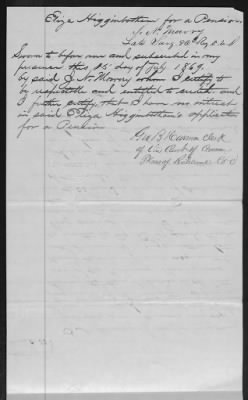 Eliza Higginbotham for a Pension
J. N. Mowry
Late Surg 90" Reg O. V. I.
Sworn to before me and subscribed in my
presence this 25 day of July 1869.
by said J. N. Mowry whom I certify to
be respectable and entitled to credit and
I further certify that I have no interest
in said Eliza Higginbotham's application
for a Pension
Geo B Clerk
of Court of Common
Pleas of Co O